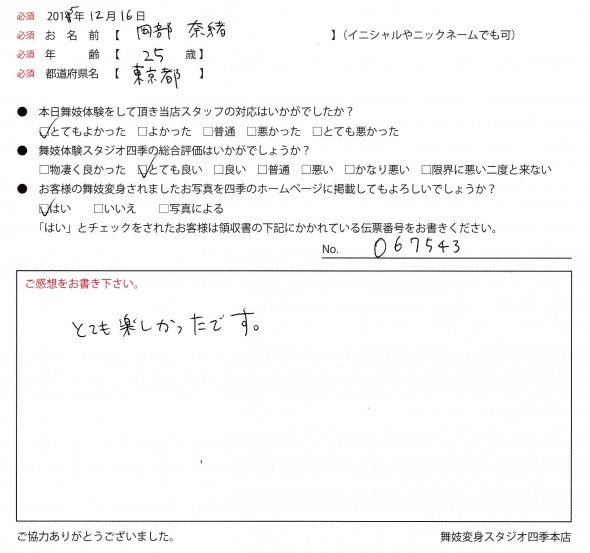 必須 2015年12月16日
必須 お名前【 岡部 奈緒 】(イニシャルやニックネームでも可)
必須 年齢【 25 歳】
必須 都道府県名【 東京都 】
● 本日舞妓体験をして頂き当店スタッフの対応はいかがでしたか?
☑とてもよかった □よかった □普通 □悪かった □とても悪かった
● 舞妓体験スタジオ四季の総合評価はいかがでしょうか?
□物凄く良かった ☑とても良い □良い □普通 □悪い □かなり悪い □限界に悪い二度と来ない
● お客様の舞妓変身されましたお写真を四季のホームページに掲載してもよろしいでしょうか?
☑はい □いいえ □写真による
「はい」とチェックをされたお客様は領収書の下記にかかれている伝票番号をお書きください。
No. 067543
ご感想をお書き下さい。
とても楽しかったです。
ご協力ありがとうございました。 舞妓変身スタジオ四季本店